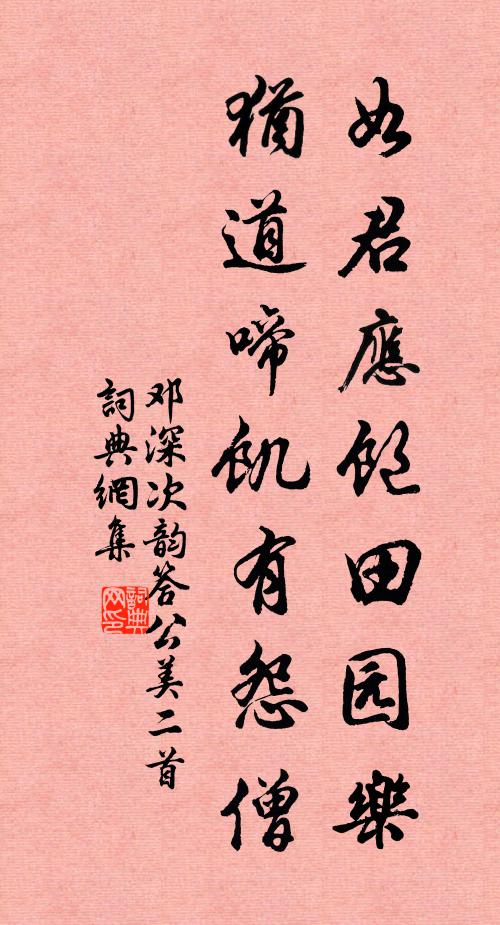 如君應飽田园樂
猶道啼飢有怨僧
邓深次韵答公美二首
詞典網集
詞典网印